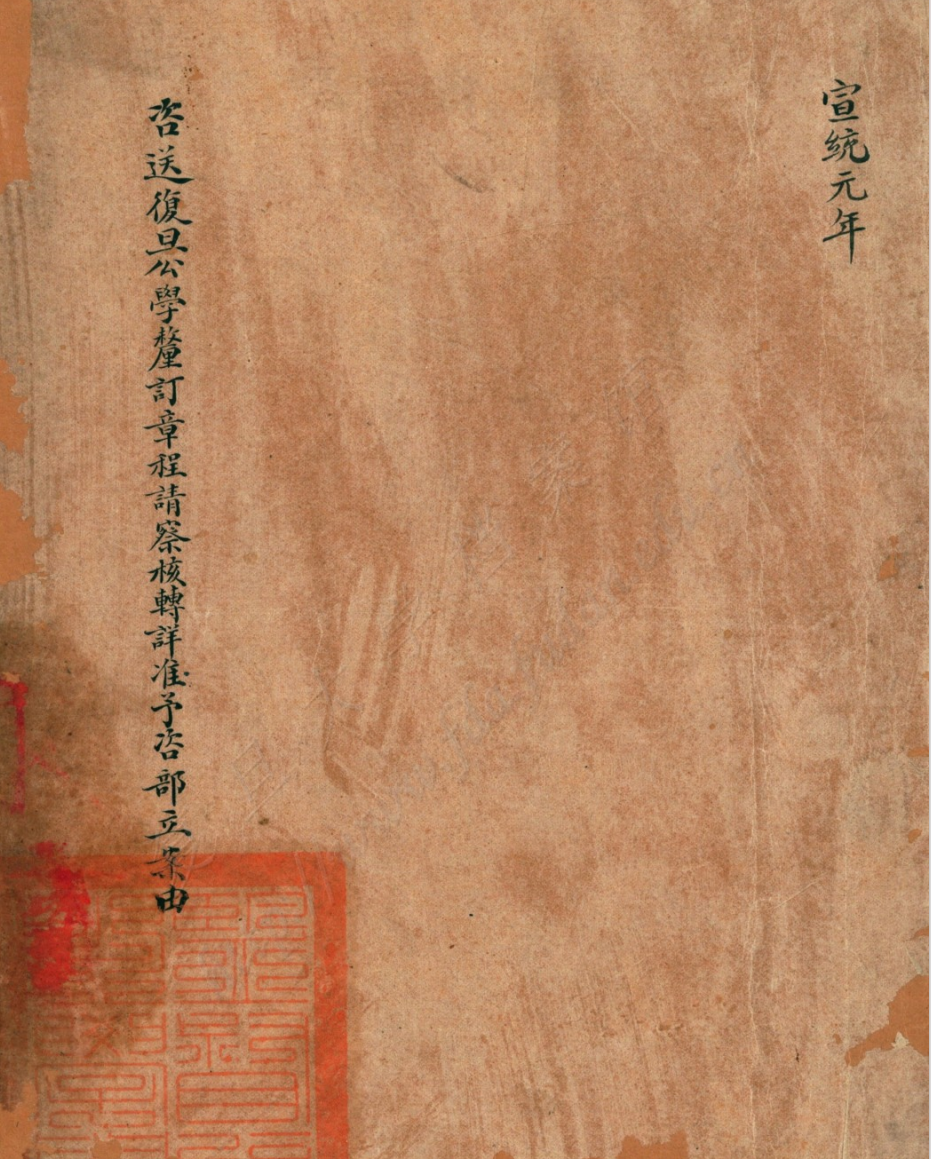 宣統元年
咨送復旦公學釐訂章程請察核轉詳准予咨部立案由